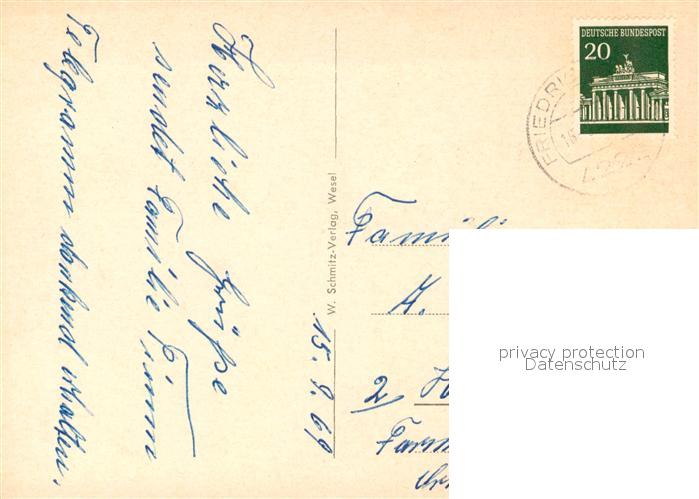 Herzliche Grüße
sendet Familie Timm
Telegramm dankend erhalten.
15. 9. 69
W. Schmitz-Verlag, Wesel
DEUTSCHE BUNDESPOST
20
FRIEDRI
Famili
A.
2 H
privacy protection
Datenschutz